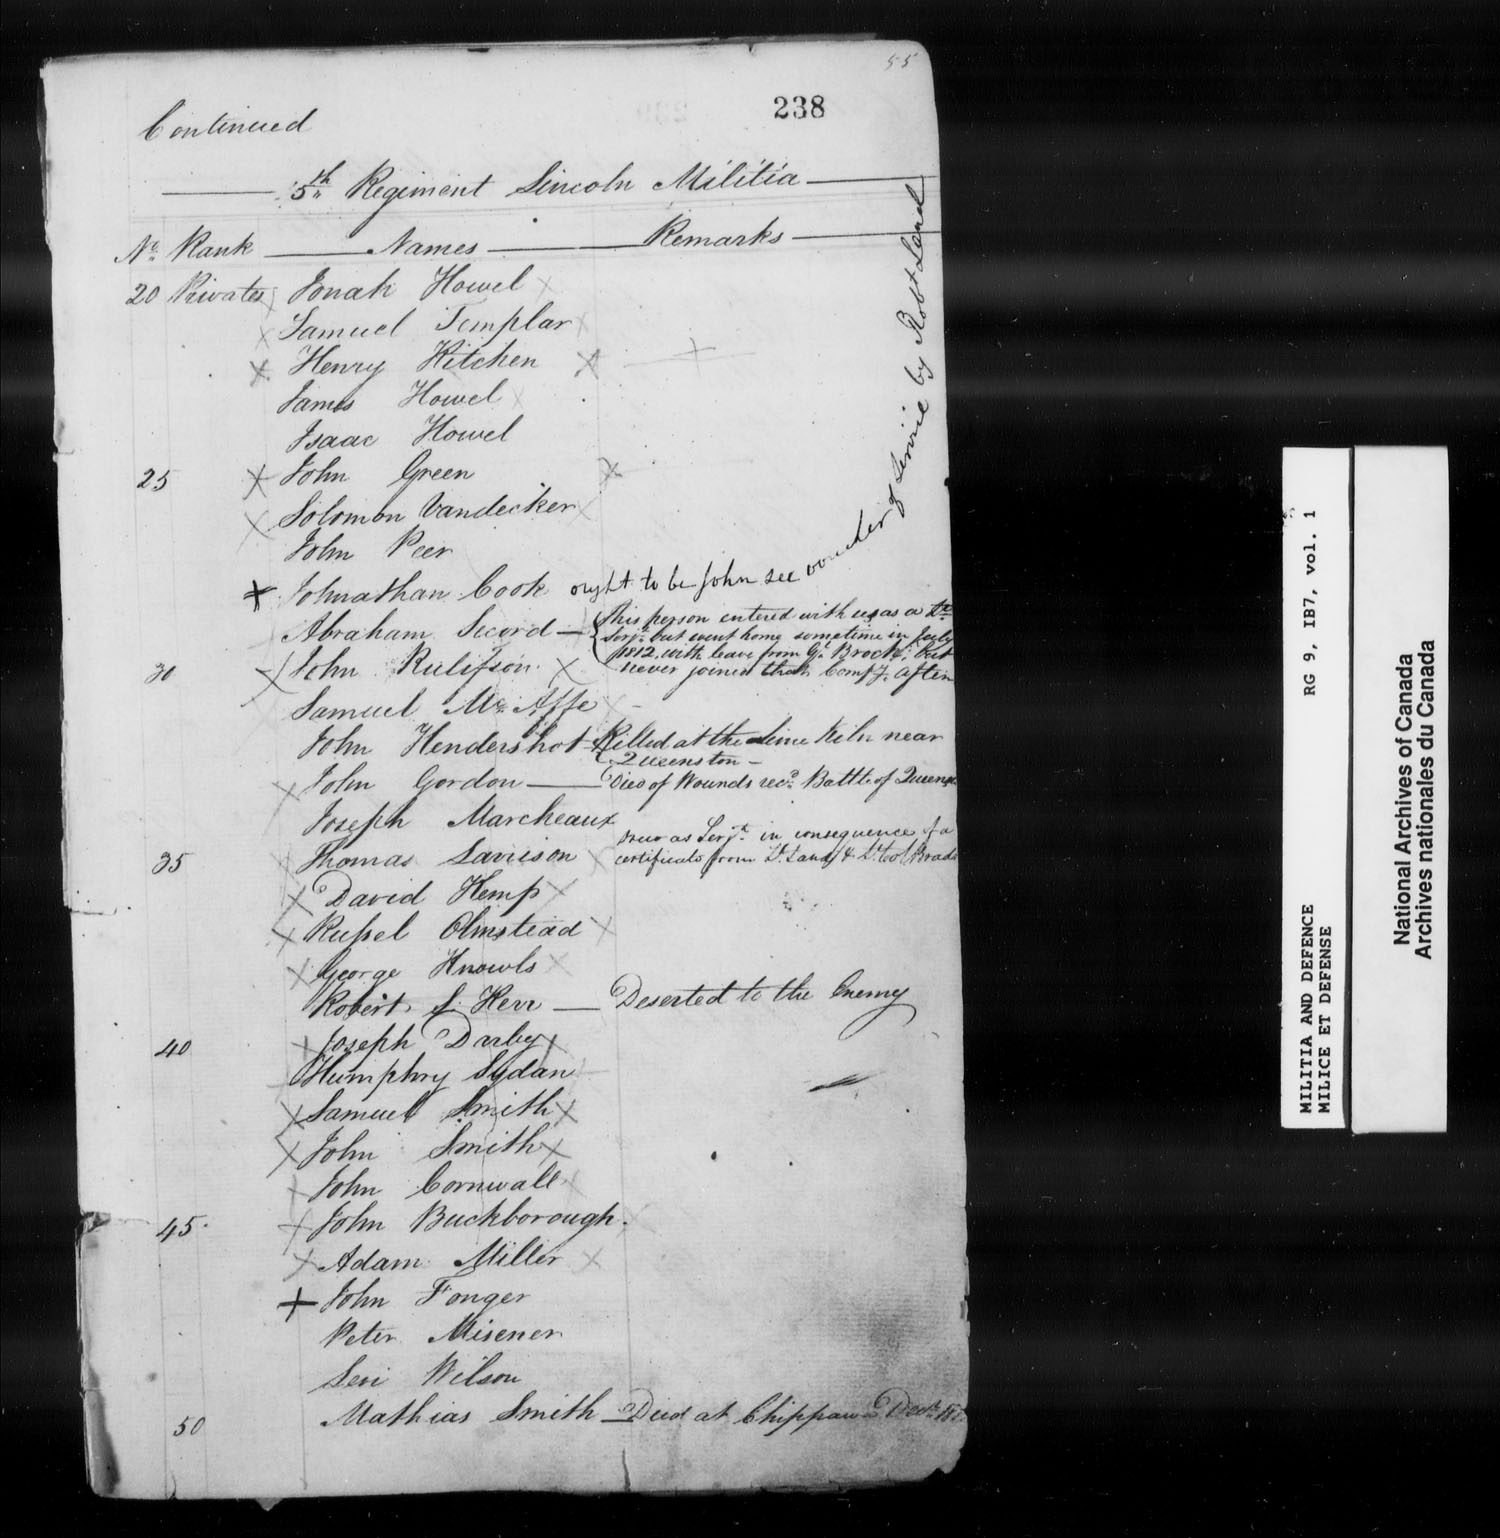 55
238
Continued
5th Regiment Lincoln Militia
No Rank Names Remarks
20 Privates Jonah Howel
Samuel Templar
Henry Kitchen
James Howel
Isaac Howel
25 John Green
Solomon Vandecker
John Peer
Johnathan Cook ought to be John see voucher of Service by Robt Land
Abraham Secord — This person entered with us as a
Serjt but went home sometime in July
1812, with leave from Gl Brock, But
30 John Rulifson never joined the Compy. after
Samuel Mc Affe
John Hendershot Killed at the Lime Kiln near
Queenston —
John Gordon — Died of Wounds recd Battle of
Joseph Marcheaux
as Serjt in consequence of a
35 Thomas certificate from Lt. Land & Lt Col
David Kemp
Russel Olmstead
George Knowls
Robert Kerr — Deserted to the Enemy
40 Joseph Darby
Humphry Sydan
Samuel Smith
John Smith
John Cornwall
45 John Buckborough
Adam Miller
John Fonger
Peter Misener
Levi Wilson
50 Mathias Smith — Died at Chippawa Decr
RG 9, IB7, vol. 1
MILITIA AND DEFENCE
MILICE ET DEFENSE
National Archives of Canada
Archives nationales du Canada